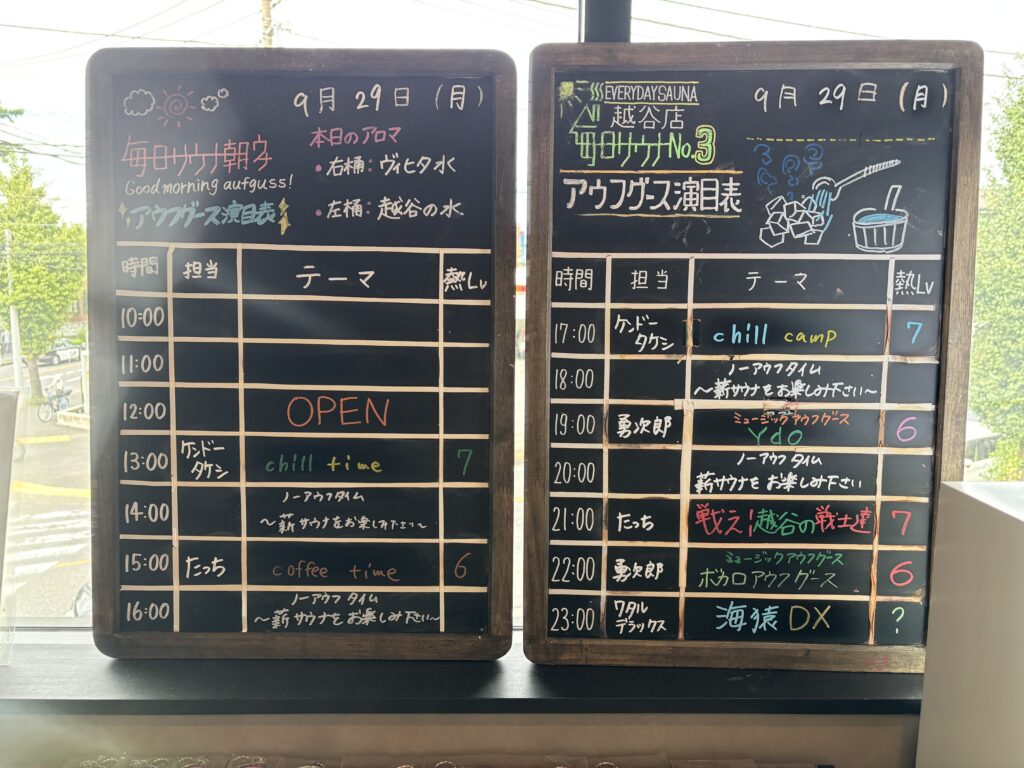 9月 29日 (月)
毎日サウナ朝ウナ
Good morning aufguss!
アウフグース演目表
本日のアロマ
• 右桶: ヴィヒタ水
• 左桶: 越谷の水
時間 担当 テーマ 熱Lv
10:00
11:00
12:00 OPEN
13:00 ケンドータケシ chill time 7
14:00 ノーアウフタイム
〜薪サウナをお楽しみ下さい〜
15:00 たっち coffee time 6
16:00 ノーアウフタイム
〜薪サウナをお楽しみ下さい〜
EVERYDAY SAUNA
越谷店
毎日サウナ No.3
アウフグース演目表
9月 29日 (月)
時間 担当 テーマ 熱Lv
17:00 ケンドータケシ chill camp 7
18:00 ノーアウフタイム
〜薪サウナをお楽しみ下さい〜
19:00 勇次郎 ミュージックアウフグース
Ydo 6
20:00 ノーアウフタイム
薪サウナをお楽しみ下さい
21:00 たっち 戦え!越谷の戦士達 7
22:00 勇次郎 ミュージックアウフグース
ボカロアウフグース 6
23:00 ワタルデラックス 海猿DX ?